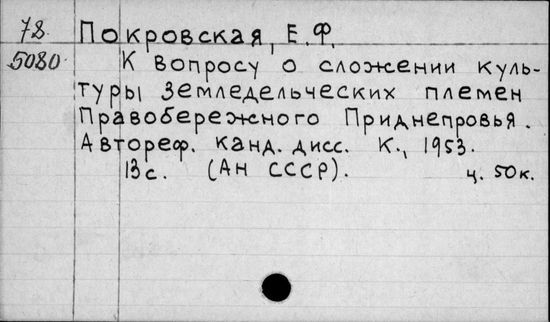 78 Покровская, Е.Ф.
5080 К вопросу о сложении куль-
туры земледельческих племен
Правобережного Приднепровья.
Автореф. канд. дисс. К., 1953.
13с. (Ан СССР). ц. 50к.